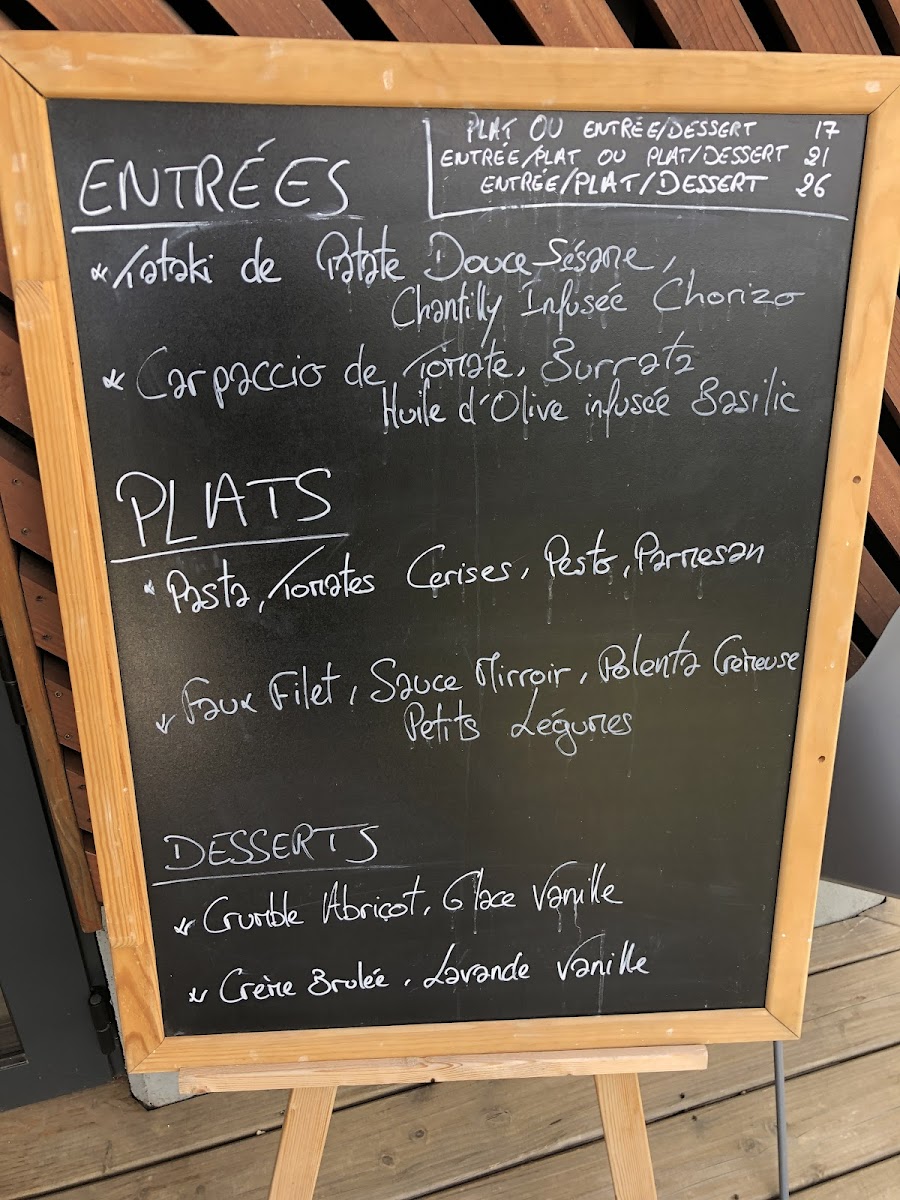 PLAT OU ENTRÉE/DESSERT 17
ENTRÉE/PLAT OU PLAT/DESSERT 21
ENTRÉE/PLAT/DESSERT 26
ENTRÉES
* Tataki de Patate Douce Sésame,
Chantilly Infusée Chorizo
* Carpaccio de Tomate, Burrata
Huile d'Olive infusée Basilic
PLATS
* Pasta, Tomates Cerises, Pesto, Parmesan
* Faux Filet, Sauce Mirroir, Polenta Crèmeuse
Petits Légumes
DESSERTS
* Crumble Abricot, Glace Vanille
* Crème Brulée, Lavande Vanille